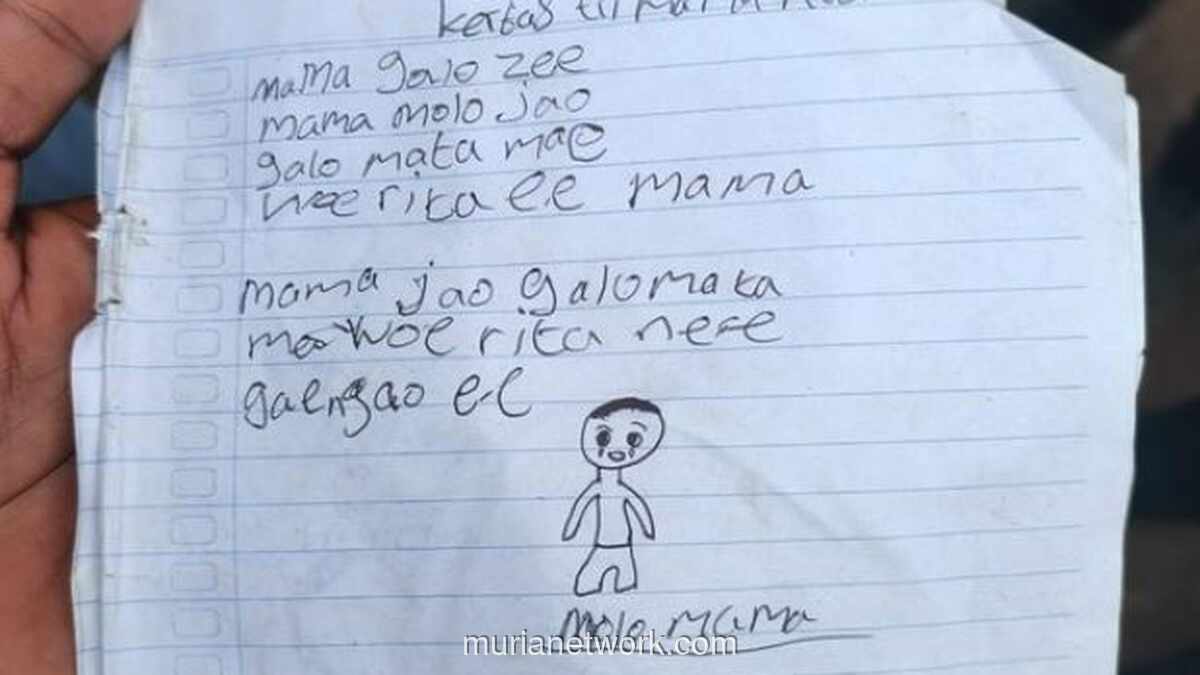 kertas
mama galo zee
mama molo jao
galo mata mae
woe rita e.e mama
mama jao galo mata
mae woe rita ne-e
gaengao e-e
molo mama
murianetwork.com